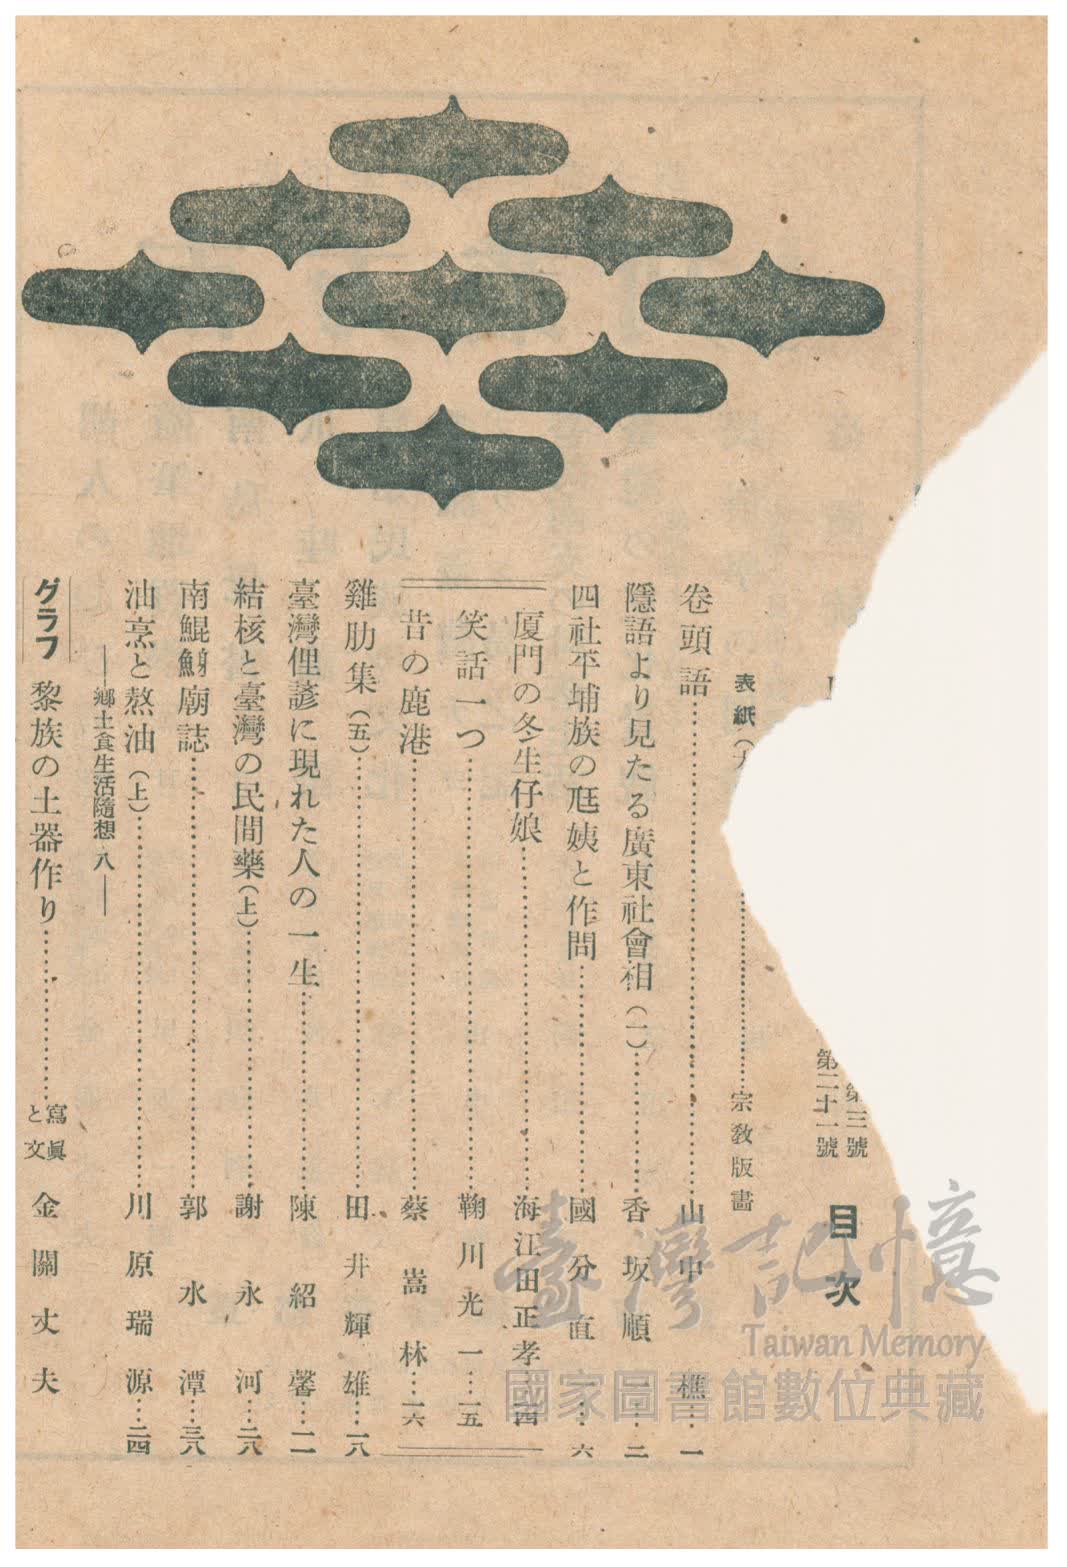 第三號
第二十一號
目次
表紙………宗教版畫
卷頭語………山中 樵…一
隱語より見たる廣東社會相(一)………香坂順一…二
四社平埔族の尫姨と作問………國分直一…六
厦門の冬生仔娘………海江田正孝…一四
笑話一つ………鞠川光一…一五
昔の鹿港………蔡嵩林…一六
雞肋集(五)………田井輝雄…一八
臺灣俚諺に現れた人の一生………陳紹馨…二一
結核と臺灣の民間藥(上)………謝永河…二八
南鯤鯓廟誌………郭水潭…三八
油烹と熬油(上)………川原瑞源…二四
——鄉土食生活隨想 八——
グラフ 黎族の土器作り………寫眞と文 金關丈夫
臺灣記憶
Taiwan Memory
國家圖書館數位典藏